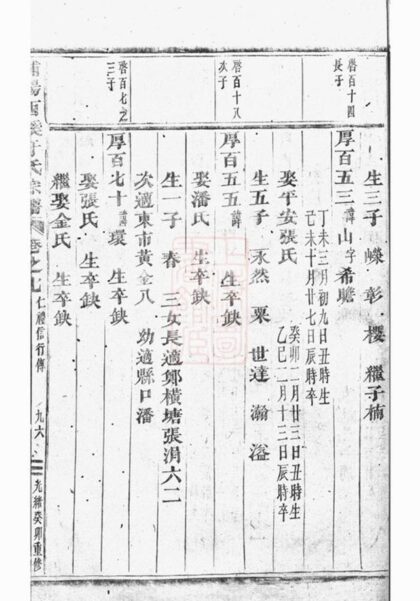 生三子 嶸 彰 樱 繼子楠
啓百十四
長子
厚百五三 諱山字希瞻
丁未三月初九日丑時生
己未十月廿七日辰時卒
娶平安張氏
癸卯二月廿三日丑時生
乙巳二月十三日辰時卒
生五子 永然 粟 世達 瀚 溢
啓百十八
次子
厚百五五 諱 生卒鈌
娶潘氏 生卒鈌
生一子 春 三女長適鄭橫塘張涓六二
次適東市黃全八 幼適縣口潘
啓百七之
三子
厚百七十 諱環 生卒鈌
娶張氏 生卒鈌
繼娶金氏 生卒鈌
氏宗譜 卷之九 仁禮信行傳 九六 光緒癸卯重修